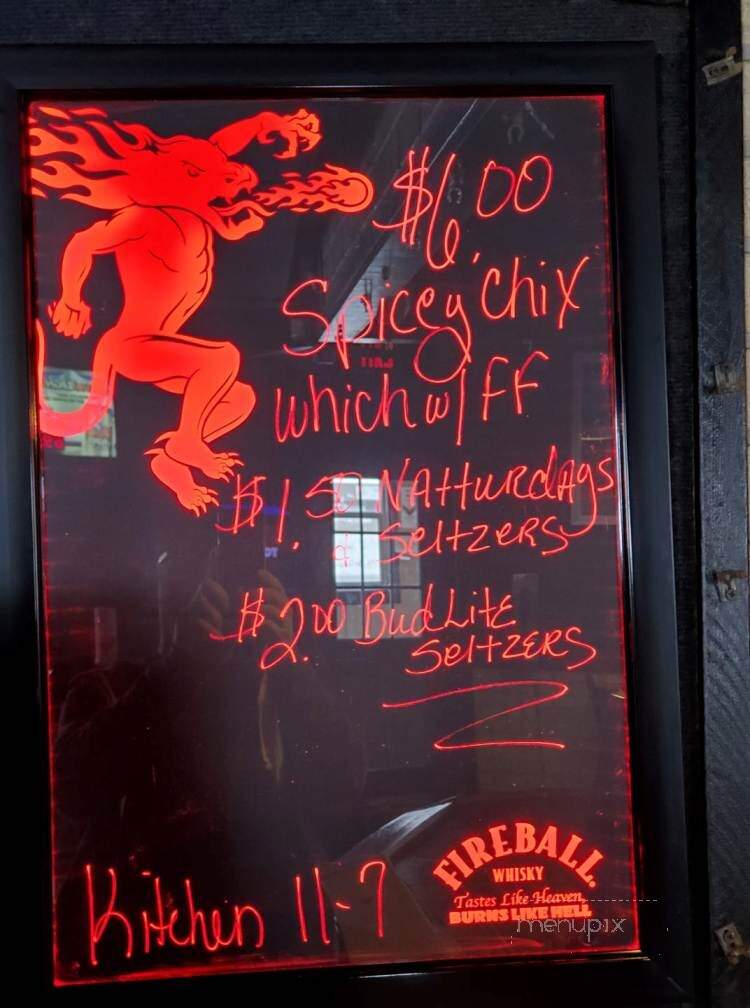 $6.00
Spicey chix
which w/ FF
$1.50 NAtturdAys
& Seltzers
$2.00 Bud Lite
Seltzers
Kitchen 11-7
FIREBALL
WHISKY
Tastes Like Heaven,
BURNS LIKE HELL
menupix